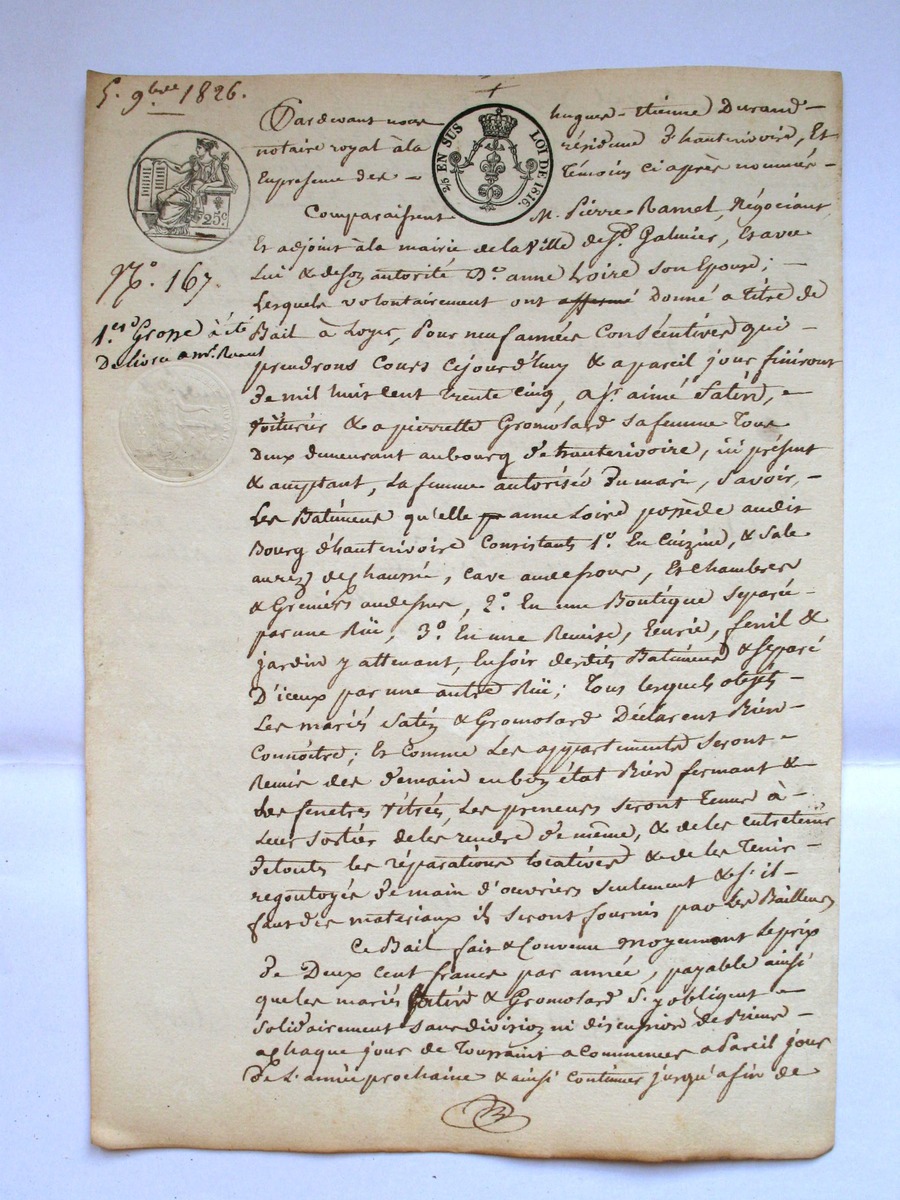 5. 9bre 1826.
25c.
2/5 EN SUS LOI DE 1816.
No. 167.
1ere Grosse a été
Delivrée a mr. Ramel
Pardevant nous hugues-Etienne Durand
notaire royal à la résidence d'hauterivoire, Et
En presence des Témoins ci après nommés
Comparaissent M. Pierre Ramel, Négociant
Et adjoint à la mairie de la Ville de St Galmier, Et avec
Lui & de son autorité De. anne Loire son Epouse;
Lesquels volontairement ont affermé donné a titre de
Bail à Loyer, Pour neuf années Consécutives qui
prendrons Cours cejourd'huy & a pareil jour finiront
de mil huit cent trente cinq, a Sr. aimé Satin,
voiturier & a pierrette Gromolard sa femme Tous
deux demeurant au bourg d'hauterivoire, ici présent
& acceptant, La femme autorisée du mari, Savoir,
Les Batimens qu'elle anne Loire possède audit
Bourg d'hauterivoire Consistants 1o. En Cuizine, & Sale
au rez de chaussé, cave au dessous, Et Chambres
& Greniers au dessus, 2o. En une Boutique separée
par une Rüe, 3o. En une Remise, Ecurie, fenil &
jardin y attenant, En soir desdits Batimens & separé
D'iceux par une autre Rüe; Tous lesquels objets
Les mariés Satin & Gromolard Déclarent Bien
Connoître; Et Comme Les appartements seront
Remis des demain en bon état Bien fermant &
Les fenetres vitrées, Les preneurs seront Tenus à
Leur sortie de les rendre de même, & de les entretenir
de toutes les réparations locatives & de les Tenir
regoutoyés de main d'ouvriers seulement & s'il
faut des materiaux ils seront fournis par Les Bailleurs
Ce Bail fait & Convenu moyennant le prix
de Deux cent francs par année, payable ainsi
que les mariés Satin & Gromolard s'y obligent
solidairement sans division ni discussion de Biens
a chaque jour de Toussaint a commencer a Pareil jour
de L'année prochaine & ainsi continuer jusqu'a fin de